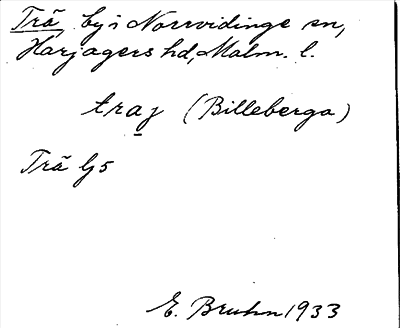 Trä by i Norrvidinge sn,
Harjagers hd, Malm. l.
traz (Billeberga)
Trä lj 5
E. Bruhn 1933